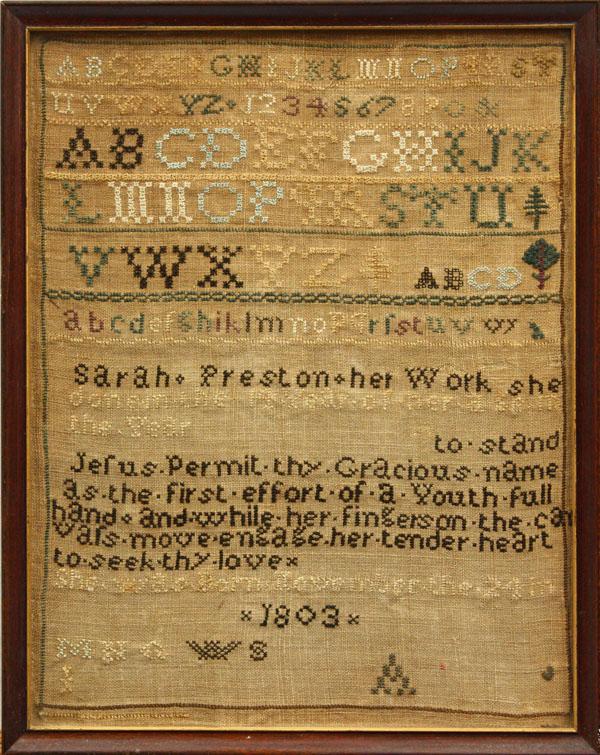 A B C D E F G H I J K L M N O P Q R S T
U V W X Y Z 1 2 3 4 5 6 7 8 9 0 &
A B C D E F G H I J K
L M N O P Q R S T U
V W X Y Z A B C D
a b c d e f g h i k l m n o p q r ſ s t u v w
Sarah Preston her Work she
the Year
to · stand
Jeſus · Permit · thy · Gracious · name
as · the · first · effort · of · a · Youth · full
hand · and · while · her · fingers on · the · can
vais · move · engage · her · tender · heart
to · seek · thy · love ×
She was Born November the 24 in
× 1803 ×
M H W S
A